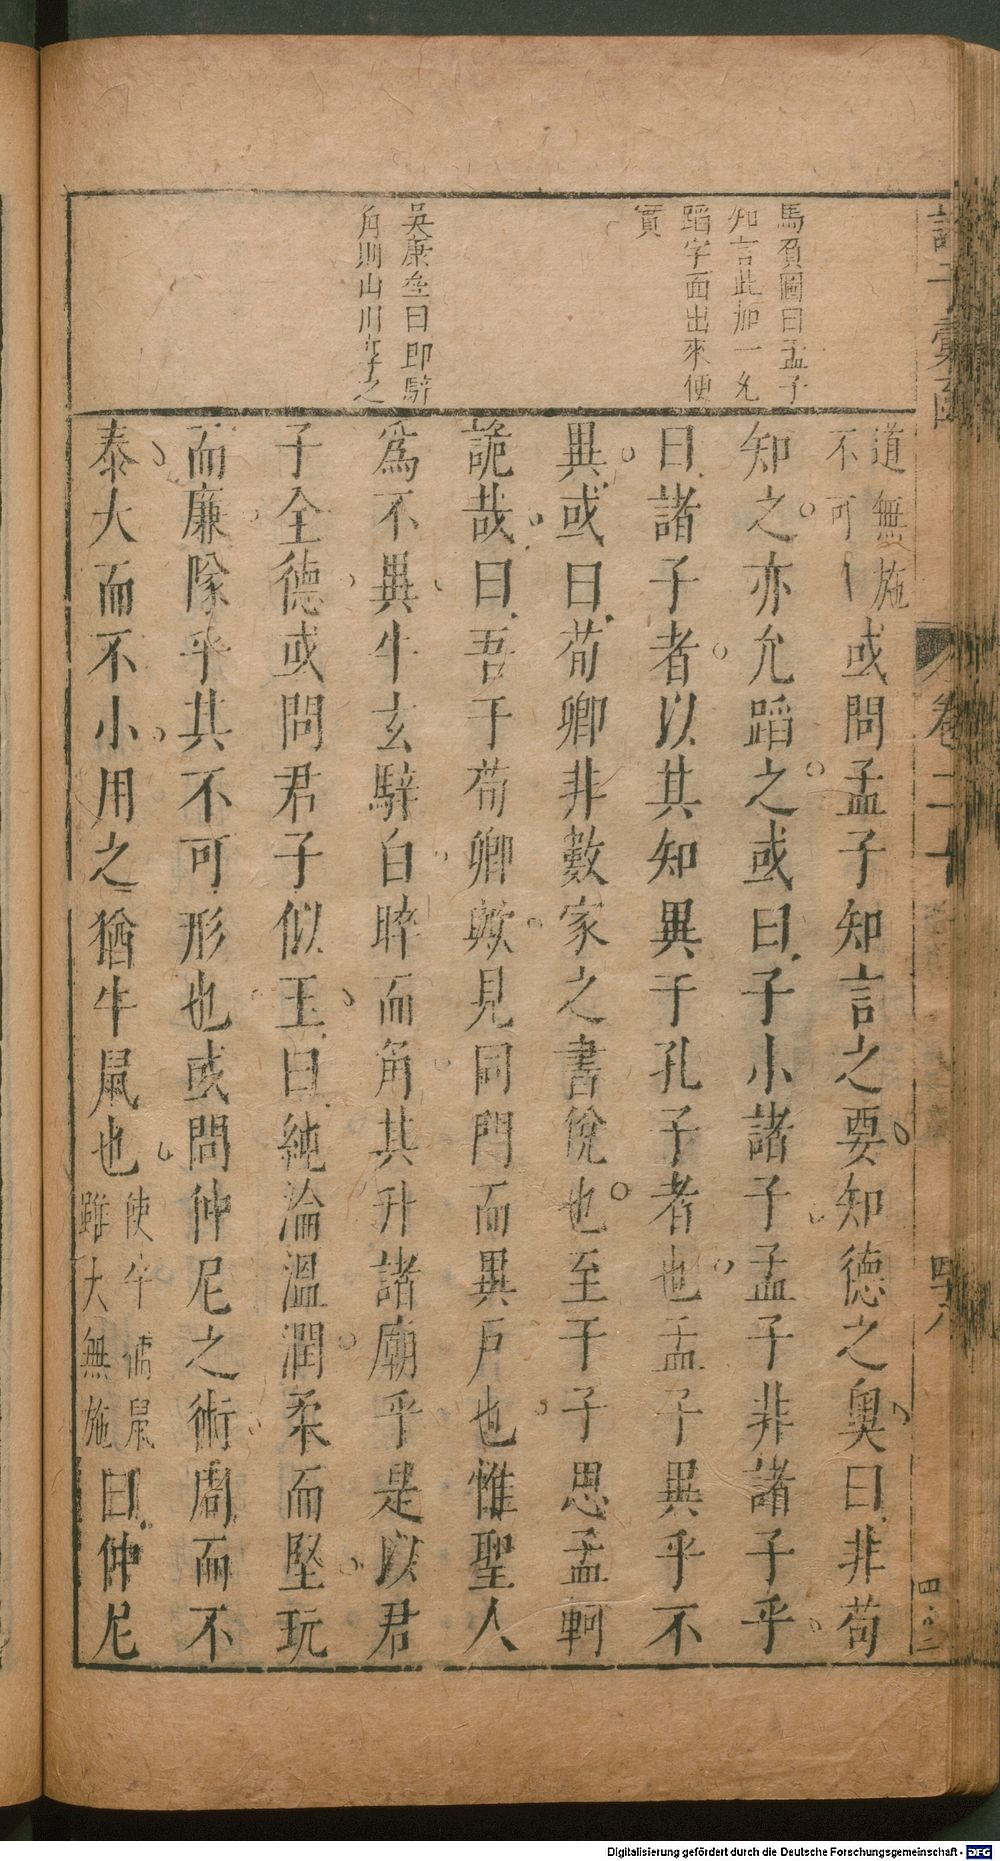 馬貧圖曰孟子
知言此加一允
蹈字面出來便
實
吳康𡉄曰即騂
角則山川享之
道無施
不可
或問孟子知言之要知德之奧曰非苟
知之亦允蹈之或曰子小諸子孟子非諸子乎
曰諸子者以其知異于孔子者也孟子異乎不
異或曰荀卿非數家之書侻也至于子思孟軻
詭哉曰吾于荀卿歟見同門而異戶也惟聖人
爲不異牛玄騂白睟而角其升諸廟乎是以君
子全德或問君子似玉曰純淪溫潤柔而堅玩
而廉隊乎其不可形也或問仲尼之術周而不
泰大而不小用之猶牛鼠也
使牛捕鼠
雖大無施
曰仲尼
卷二十
四八
Digitalisierung gefördert durch die Deutsche Forschungsgemeinschaft - DFG